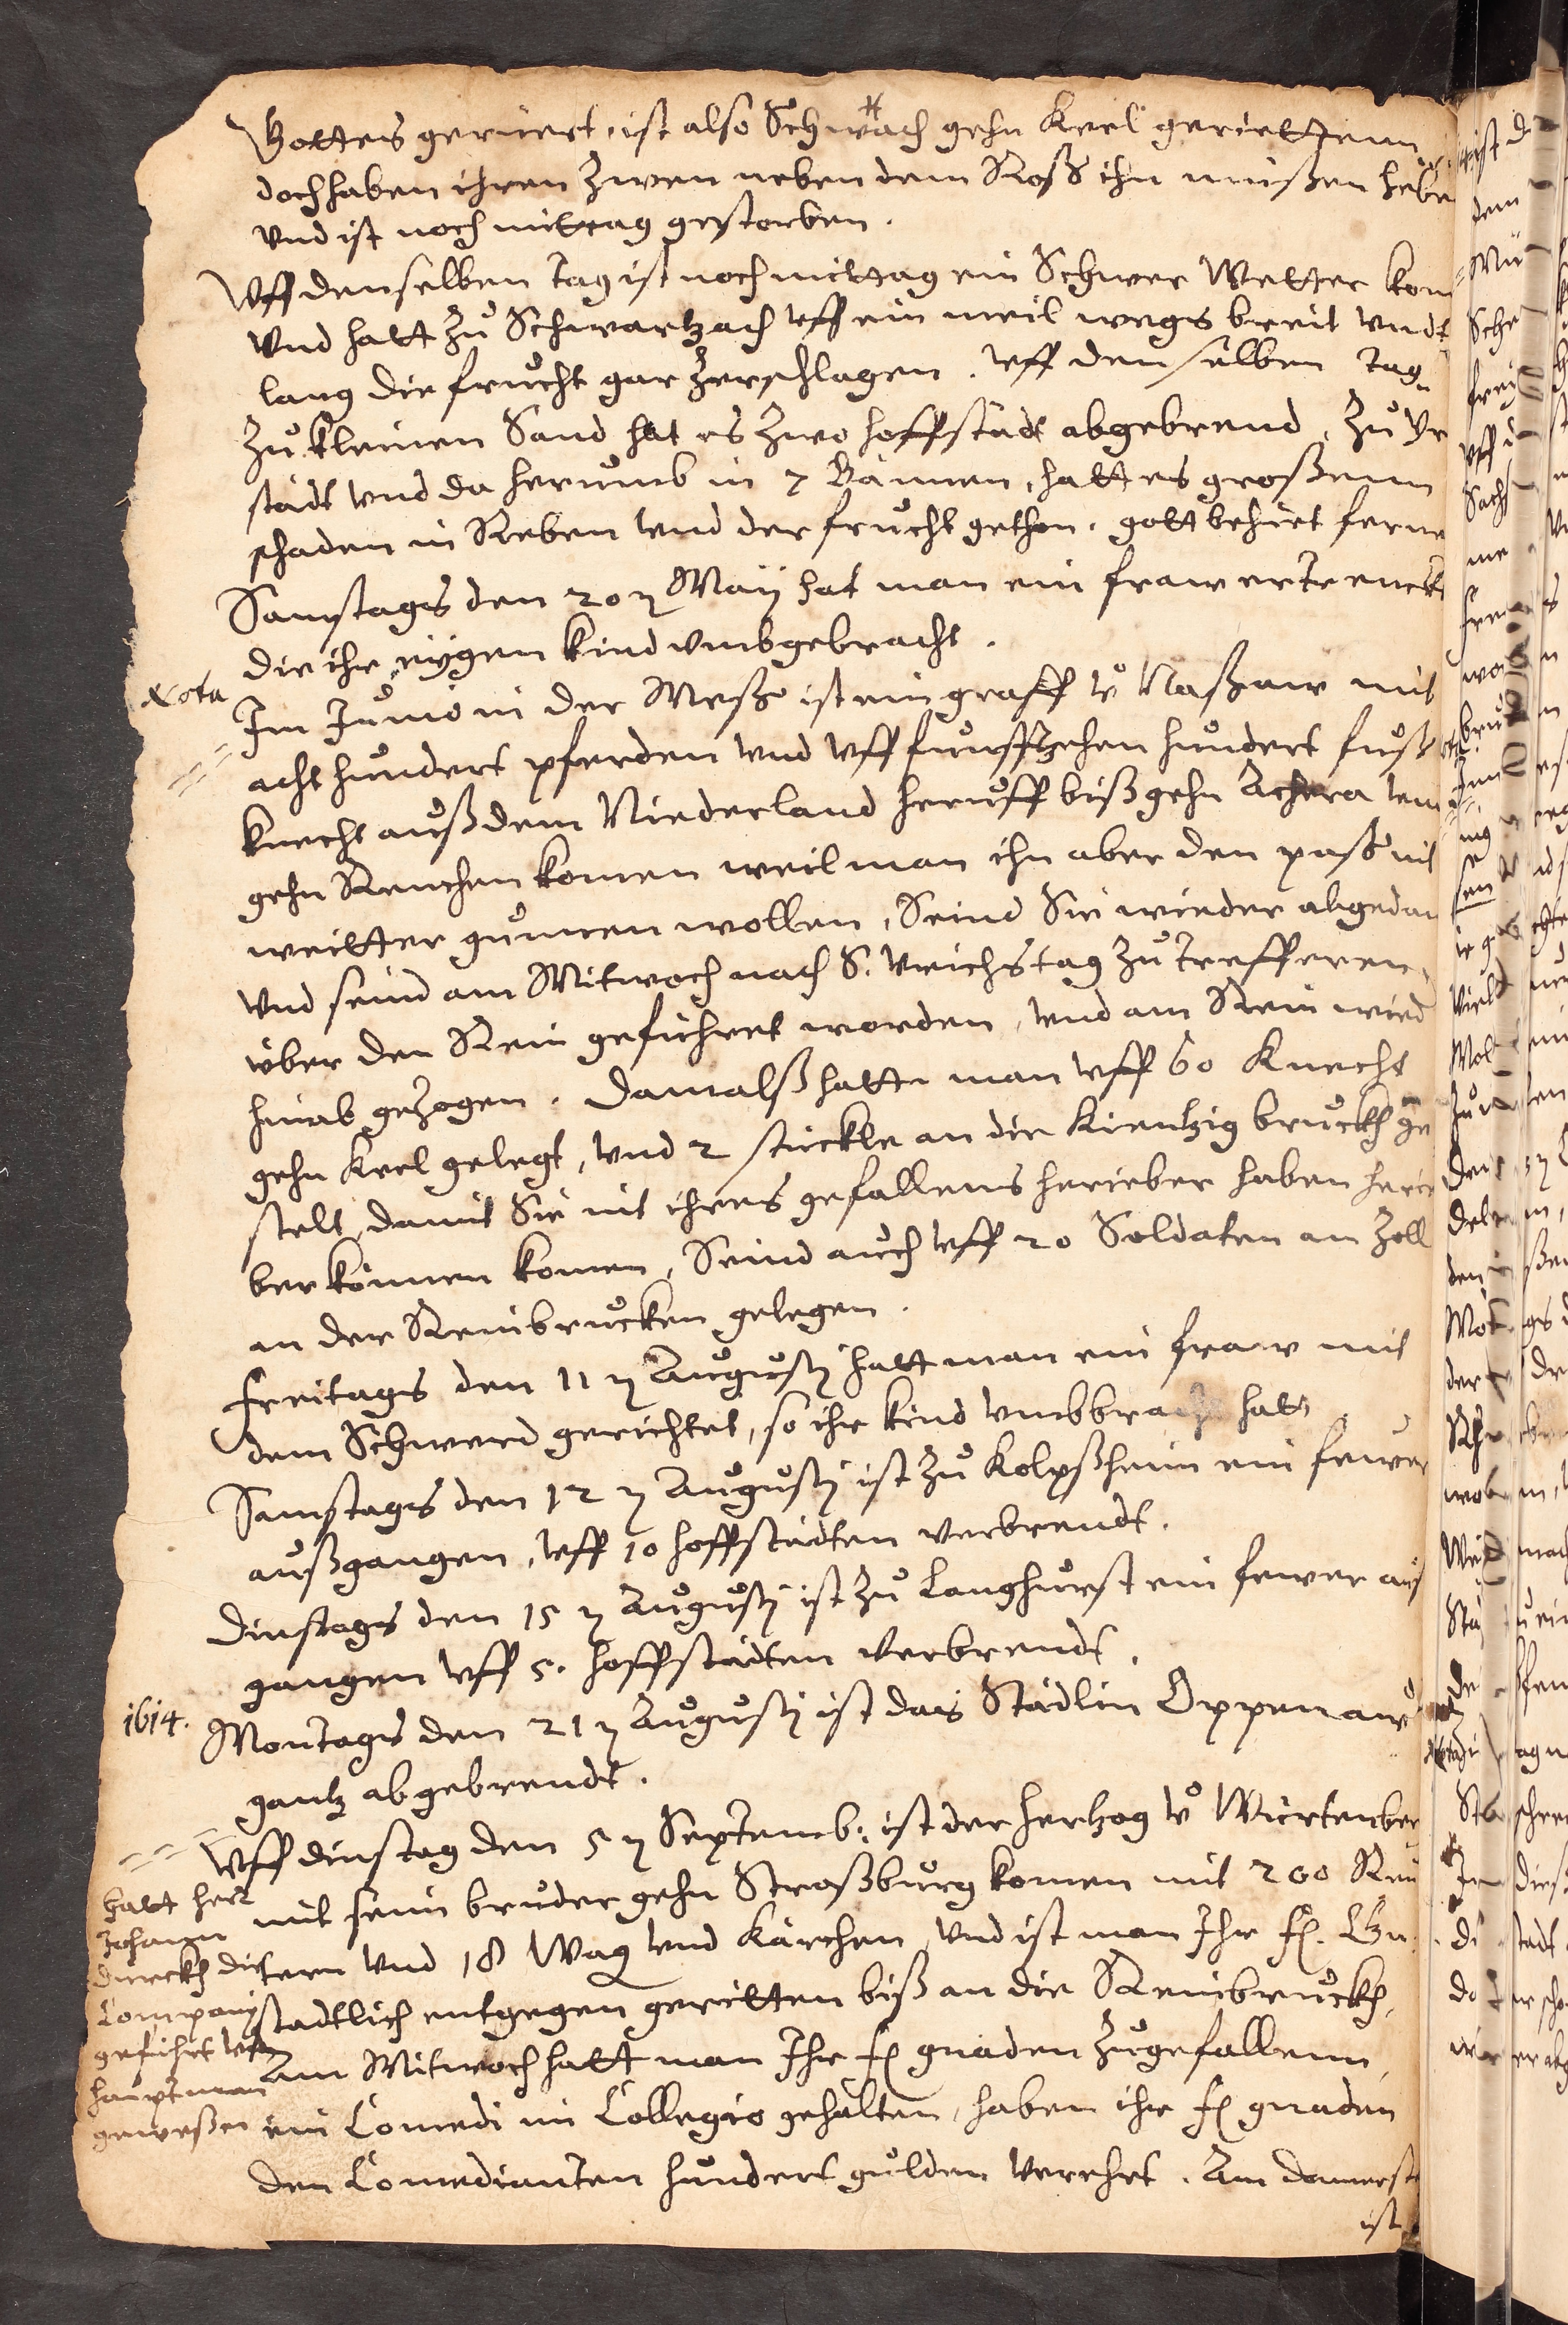 Gottes gerüert, ist also Schwach gehn Keel gerietteenn
doch haben ihren Zwen neben dem Roß ihn müßen hebe
Vnd ist noch mittag gestorben.
Vff denselben tag ist noch mittag ein Schwer Wetter kom
Vnd hatt Zu Schwartzach vff ein meil wegs breit vndt
lang die frucht gar Zerschlagen. Vff denselben tag
Zu kleinen Sand hat es Zwo hoffstädt abgebrend, Zu
städt vnd da herumb in 7 Bännen, hatt es großenn
schaden in Reben vnd der frucht gethon. gott behüet ferne
Samstags den 20 Maÿ hat man ein fraw ertrenckt
die ihr eÿgen kind vmbgebracht.
Nota
Im Junio in der Meßs ist ein graff v Naßaw mit
acht hundert pferden vnd vff funffzehen hundert fuß
knecht auß dem Niederland heruff biß gehn Achera vnd
gehn Renchen komen weil man ihn aber den paß nit
weitter gunnen wollen, Seind Sie wieder abgedan
Vnd seind am Mitwoch nach S. Vrichs tag Zu trefferen
über den Rein geführet worden, vnd am Rein wied
hinab geZogen. Damalß hatte man vff 60 Knecht
gehn Keel gelegt, vnd 2 stückle an die Kientzig bruckh ge
stelt, damit Sie nit ihres gefallens herieber haben
ber können komen, Seind auch vff 20 Soldaten am Zoll
an der Reinbrucken gelegen.
Freitags den 11 Augusti hatt man ein fraw mit
dem Schwerd gerichtet, so ihr kind vmbbracht hatt
Samstags den 12 Augusti ist Zu Kolpßheim ein fewer
außgangen, vff 10 hoffstädten verbrendt.
Dinstags den 15 Augusti ist Zu Langhurst ein fewer auß
gangen vff 5. hoffstädten verbrendt.
1614.
Montags den 21 Augusti ist das Städlin Oppenaw
gantz abgebrendt.
Vff dinstag den 5 Septemb: ist der hertzog v Würtenber
mit sein bruder gehn Straßburg komen mit 200 Reü
tern vnd 18 Wag vnd Kärchen, vnd ist man Ihr f. Gn.
stadtlich entgegen geritten biß an die Reinbruckh.
Am Mitwoch hatt man Ihr f gnaden Zugefallenn
ein Comedi im Collegio gehalten, haben ihr f gnaden
den Comedianten hundert gulden verehrt. Am donerst
ist
hatt herr
Johann
die
Compani
geführt vnd
hauptman
geweßen